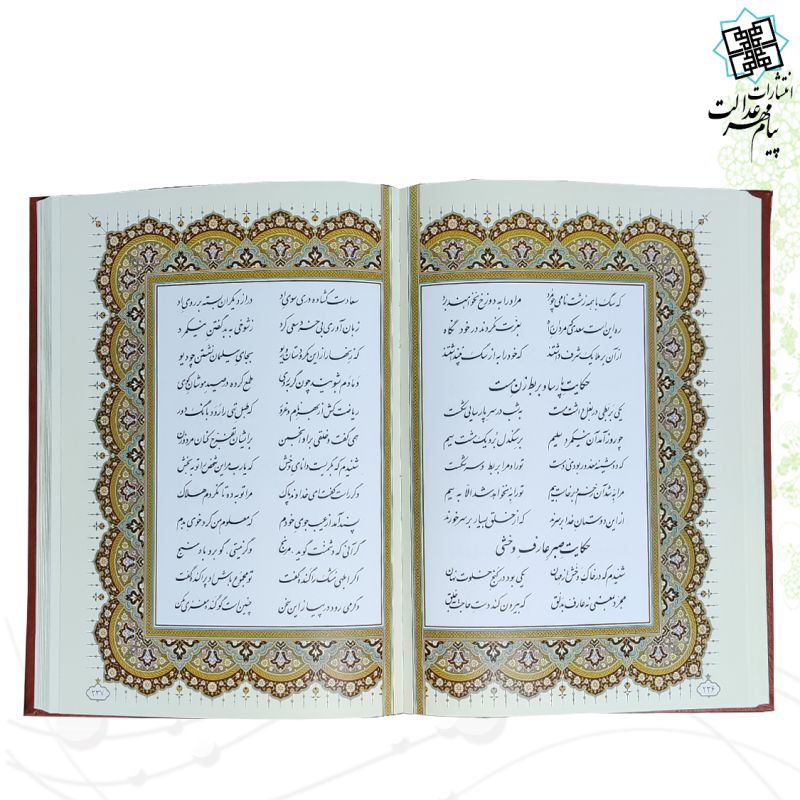 انتشارات
پیام مهر عدالت
که سگ با همه زشت نامی چو مرد مر او را به دوزخ نخواهند برد
ره این است سعدی که مردان راه بعزت نکردند در خود نگاه
از آن بر ملایک شرف داشتند که خود را به از سگ نپنداشتند
حکایت پارسا و بربط زن مست
یکی بربطی در بغل داشت مست به شب در سر پارسایی شکست
چو روز آمد آن نیکمرد سلیم بر سنگدل برد یک مشت سیم
که دوشینه معذور بودی و مست تو را و مرا بربط و سر شکست
مرا به شد آن زخم و برخاست بیم تو را به نخواهد شد الا به سیم
از این دوستان خدا بر سرند که از خلق بسیار بر سر خورند
حکایت صبر عارف وخشی
شنیدم که در خاک وخش از مهان یکی بود در کنج خلوت نهان
مجرد به معنی نه عارف به دلق که بیرون کند دست حاجت به خلق
۲۳۶
سعادت گشاده دری سوی او در از دیگران بسته بر روی او
زبان آوری بی خرد سعی کرد ز شوخی به بد گفتن نیکمرد
که زنهار از این مکر و دستان و ریو بجای سلیمان نشستن چو دیو
دمادم بشویند چون گربه روی طمع کرده در صید موشان کوی
ریاضت کش از بهر نام و غرور که طبل تهی را رود بانگ دور
همی گفت و خلقی بر او انجمن بر ایشان تفرج کنان مرد و زن
شنیدم که بگریست دانای وخش که یارب مر این شخص را توبه بخش
وگر راست گفت ای خداوند پاک مرا توبه ده تا نگردم هلاک
پسند آمد از عیب جوی خودم که معلوم من کرد خوی بدم
گر آنی که دشمنت گوید، مرنج وگر نیستی، گو برو باد سنج
اگر ابلهی مشک را گنده گفت تو مجموع باش او پراکنده گفت
وگر می رود در پیاز این سخن چنین است گو گنده مغزی مکن
۲۳۷